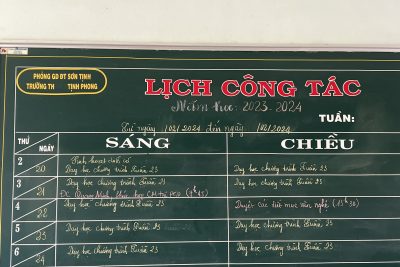 PHÒNG GD ĐT SƠN TỊNH
TRƯỜNG TH TỊNH PHONG
LỊCH CÔNG TÁC
Năm học: 2023-2024
TUẦN:
Từ ngày /02/2024 đến ngày /02/2024
THỨ NGÀY SÁNG CHIỀU
2 20 Sinh hoạt dưới cờ
Dạy học chương trình Tuần 23 Dạy học chương trình Tuần 23
3 21 Dạy học chương trình Tuần 23 Dạy học chương trình Tuần 23
ĐC
4 22 Dạy học chương trình Tuần 23 Duyệt các tiết mục văn nghệ (15h30)
5 23 Dạy học chương trình Tuần 23 Dạy học chương trình Tuần 23
6 24 Dạy học chương trình Tuần 23 Dạy học chương trình Tuần 23